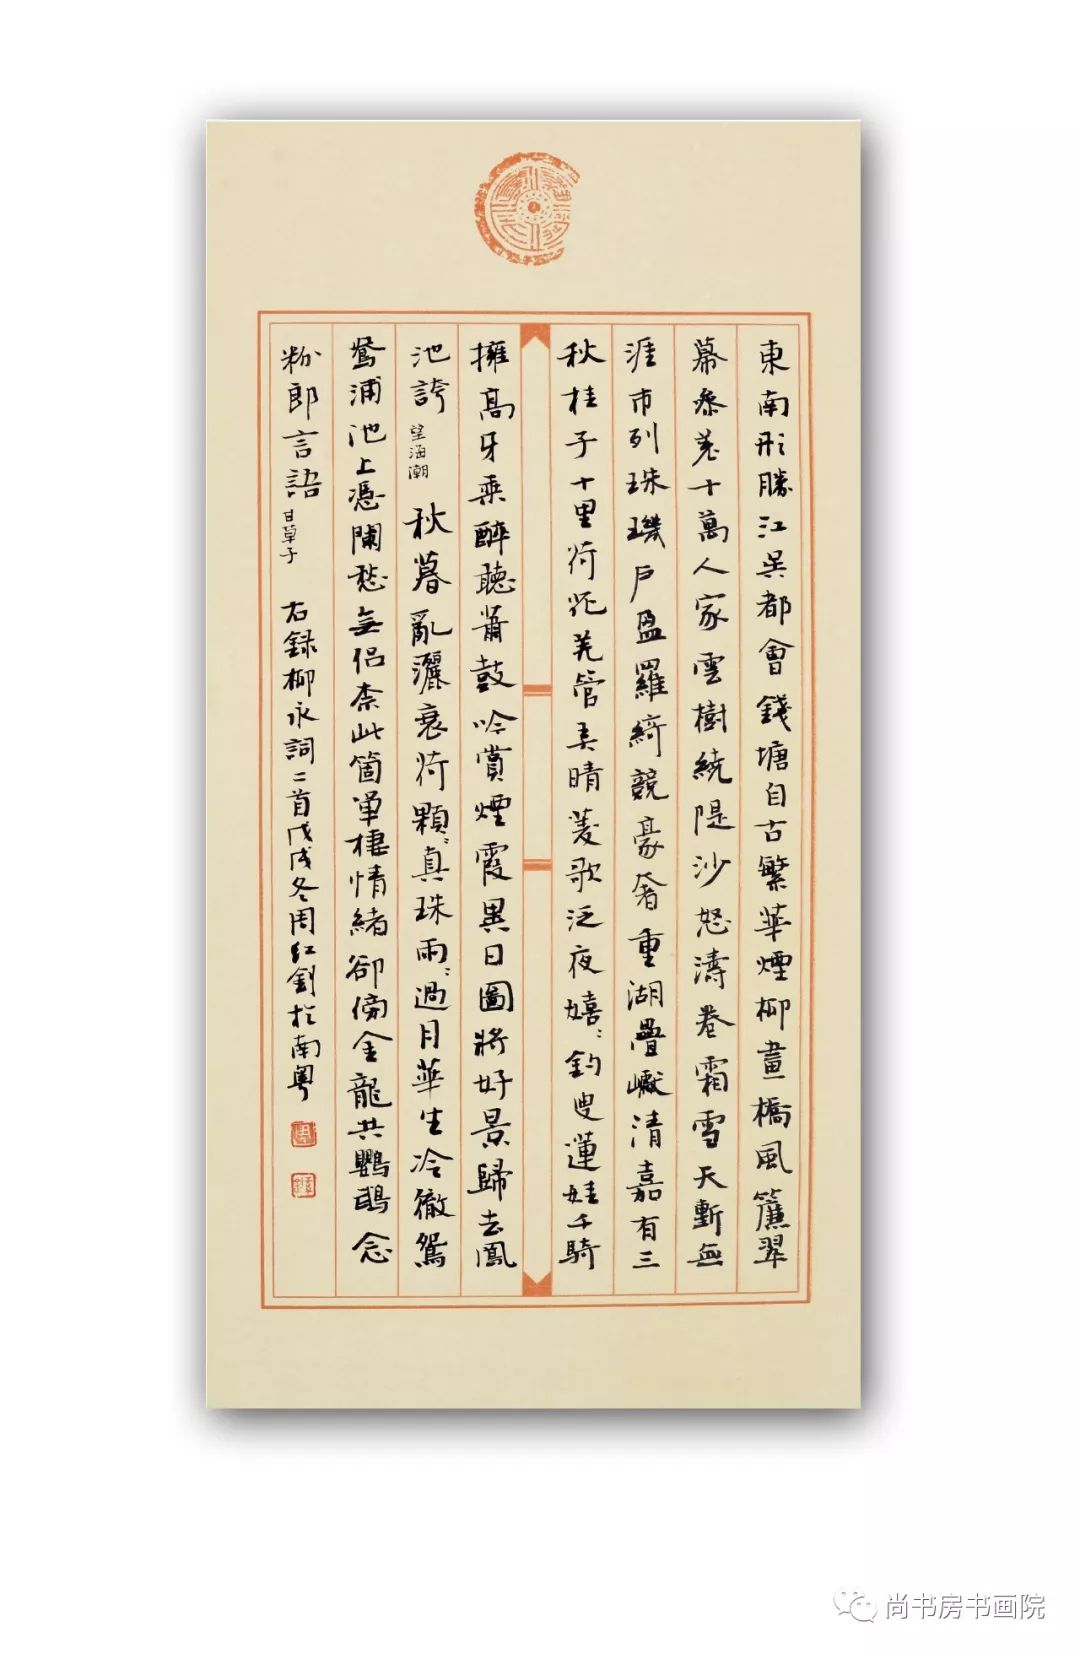 東南形勝江吴都會錢塘自古繁華煙柳畫橋風簾翠
幕叅差十萬人家雲樹繞隄沙怒濤卷霜雪天塹無
涯市列珠璣戶盈羅綺競豪奢重湖疊巘清嘉有三
秋桂子十里荷花羌管弄晴菱歌泛夜嬉〻釣叟蓮娃千騎
擁高牙乘醉聽簫鼓吟賞煙霞異日圖將好景歸去鳳
池誇 望海潮 秋暮亂灑衰荷顆〻真珠雨〻過月華生冷徹鴛
鴦浦池上憑闌愁無侶柰此箇單棲情緒卻傍金龍共鸚鵡念
粉郎言語 甘草子 右録柳永詞二首戊戌冬周紅釗於南粵
尚书房书画院